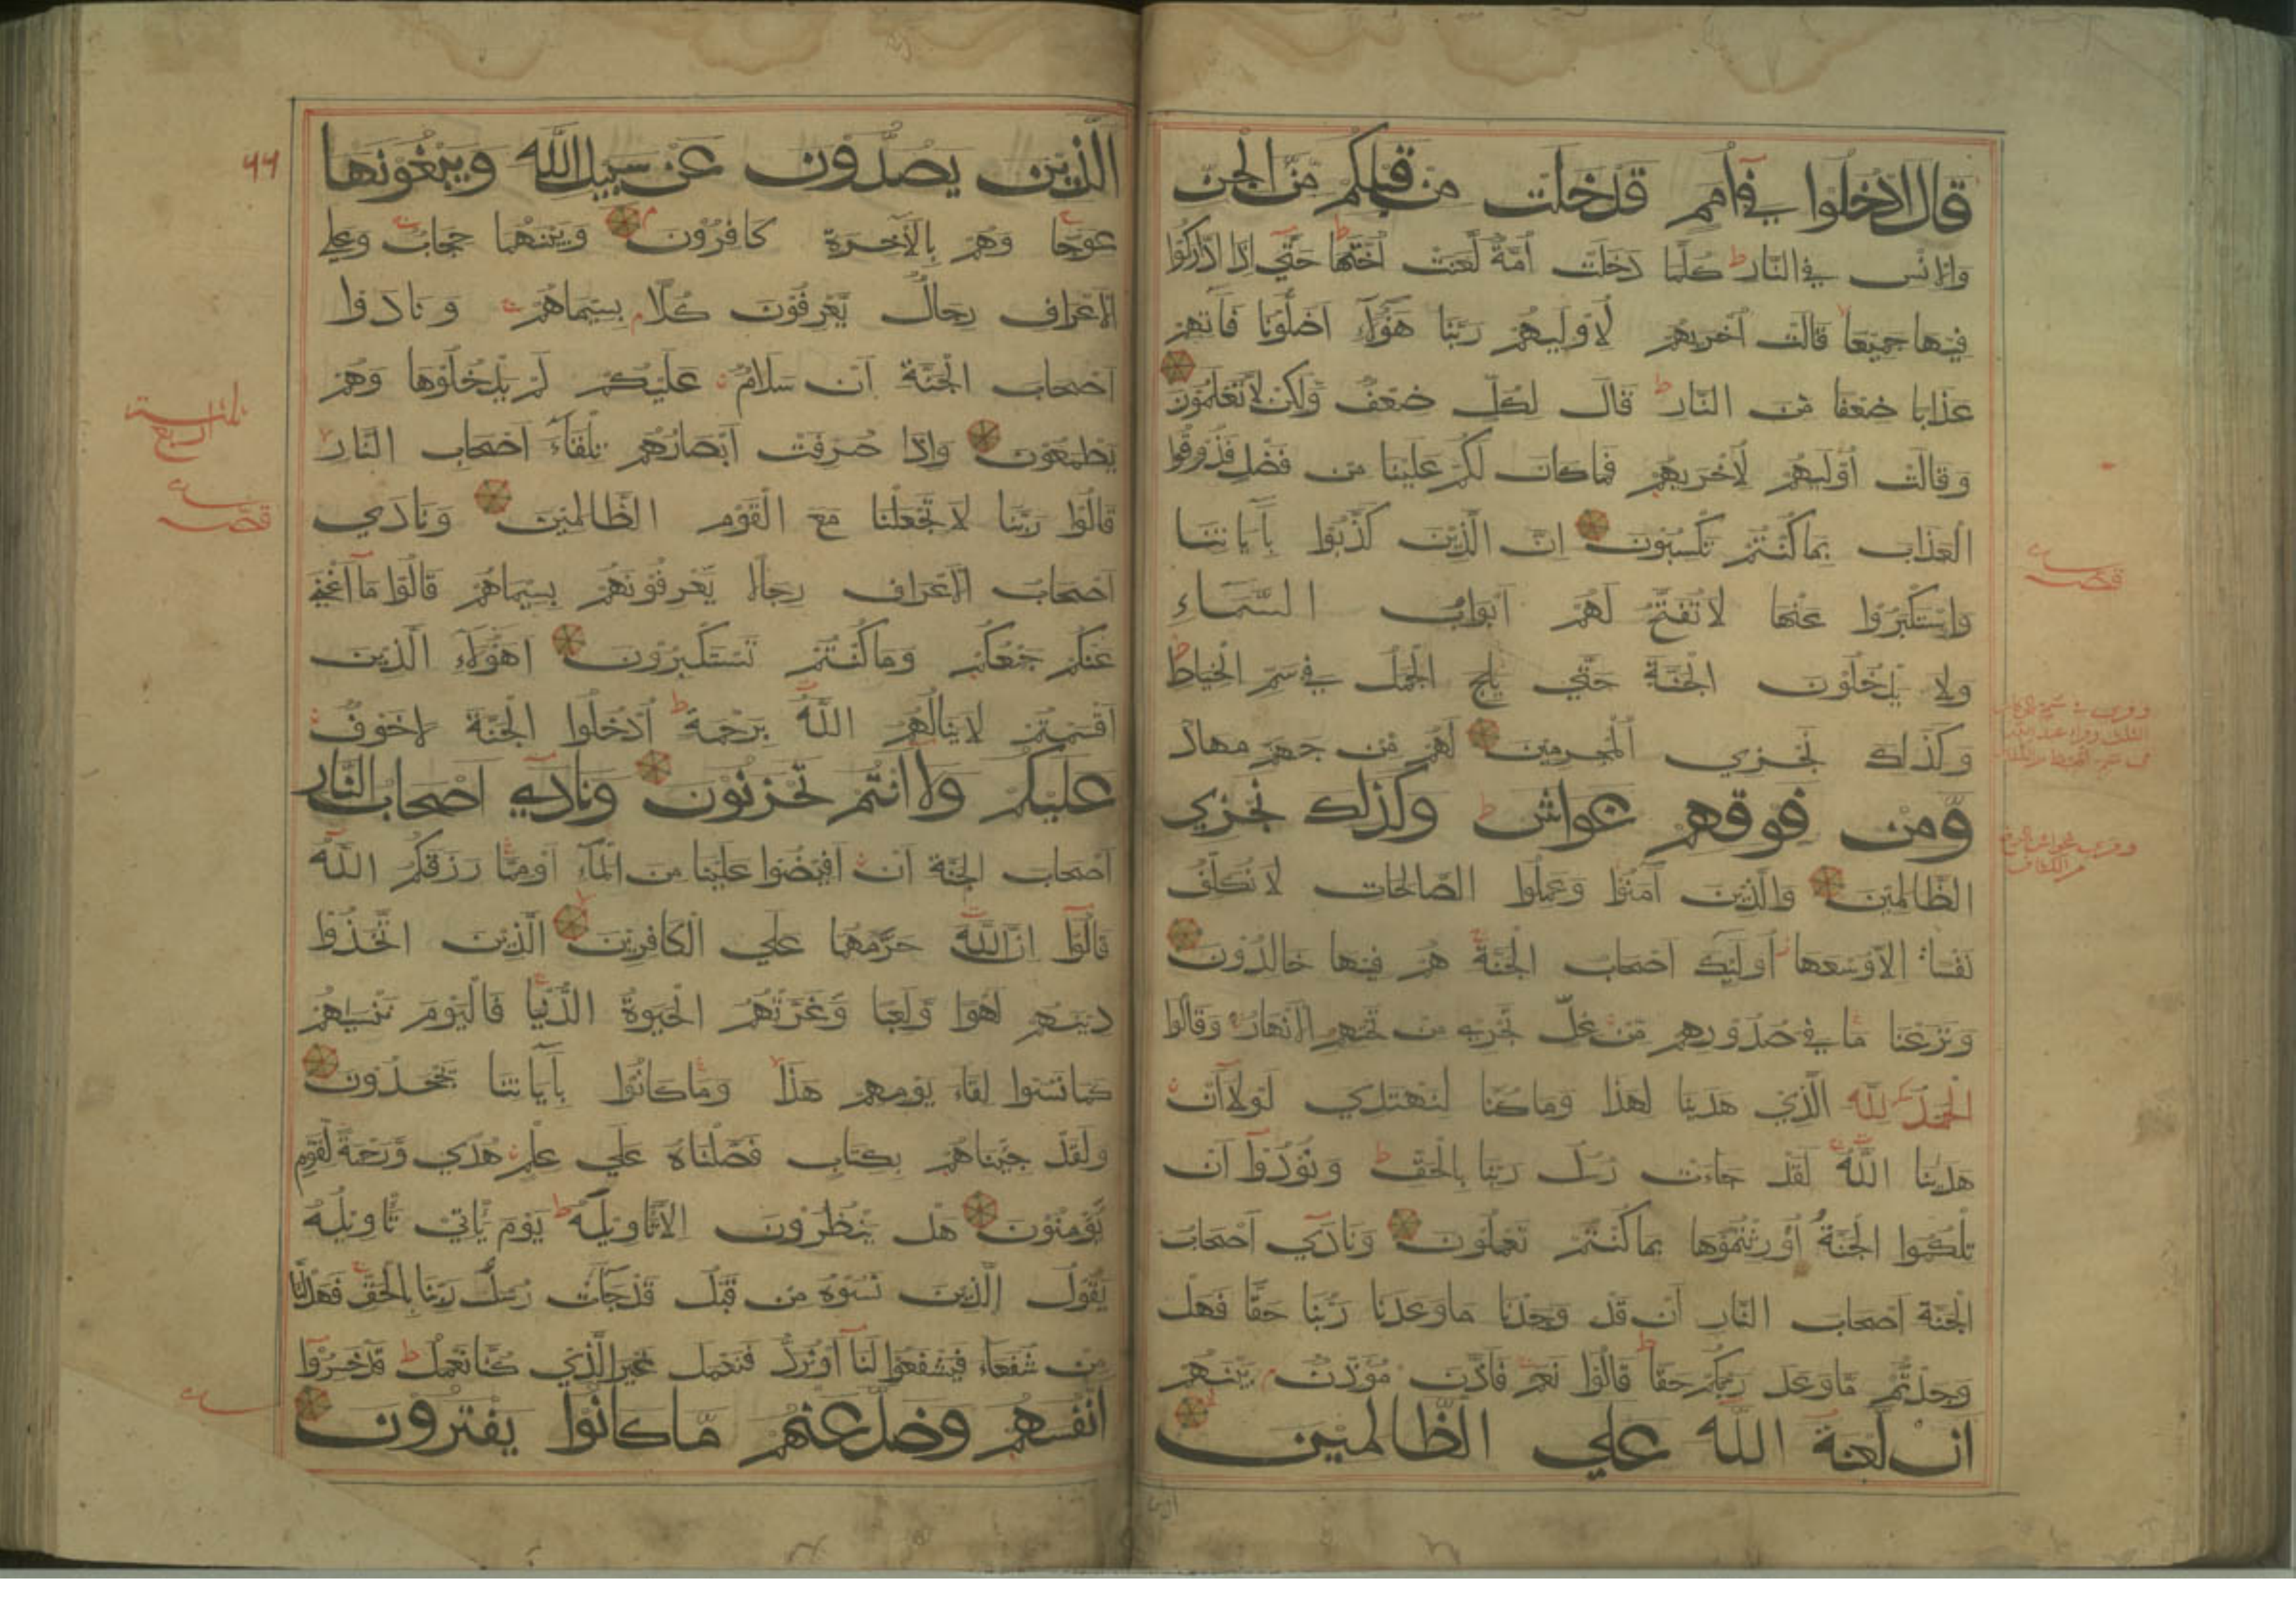 قال ادخلوا في أمم قد خلت من قبلكم من الجن
والانس في النار كلما دخلت أمة لعنت اختها حتي إذا اداركوا
فيها جميعا قالت أخريهم لأوليهم ربنا هؤلاء اضلونا فاتهم
عذابا ضعفا من النار قال لكل ضعف ولكن لا تعلمون
وقالت أوليهم لأخريهم فما كان لكم علينا من فضل فذوقوا
العذاب بما كنتم تكسبون ان الذين كذبوا بآياتنا
واستكبروا عنها لا تفتح لهم ابواب السماء
ولا يدخلون الجنة حتي يلج الجمل في سم الخياط
وكذلك نجزي المجرمين لهم من جهنم مهاد
ومن فوقهم غواش وكذلك نجزي
الظالمين والذين آمنوا وعملوا الصالحات لا نكلف
نفسا الا وسعها أوليك اصحاب الجنة هم فيها خالدون
ونزعنا ما في صدورهم من غل تجري من تحتهم الانهار وقالوا
الحمد لله الذي هدينا لهذا وما كنا لنهتدي لولا أن
هدينا الله لقد جاءت رسل ربنا بالحق ونودوا أن
تلكموا الجنة أورثتموها بما كنتم تعملون ونادي أصحاب
الجنة اصحاب النار أن قد وجدنا ما وعدنا ربنا حقا فهل
وجدتم ما وعد ربكم حقا قالوا نعم فاذن مؤذن بينهم
ان لعنة الله علي الظالمين
قصـ
الذين يصدون عن سبيل الله ويبغونها
عوجا وهم بالآخرة كافرون وبينهما حجاب وعلي
الاعراف رجال يعرفون كلا بسيماهم ونادوا
اصحاب الجنة أن سلام عليكم لم يدخلوها وهم
يطمعون واذا صرفت أبصارهم تلقاء اصحاب النار
قالوا ربنا لا تجعلنا مع القوم الظالمين ونادي
اصحاب الاعراف رجالا يعرفونهم بسيماهم قالوا ما أغني
عنكم جمعكم وما كنتم تستكبرون اهؤلاء الذين
اقسمتم لا ينالهم الله برحمة أدخلوا الجنة لا خوف
عليكم ولا انتم تحزنون ونادي اصحاب النار
اصحاب الجنة أن افيضوا علينا من الماء أو مما رزقكم الله
قالوا ان الله حرمهما علي الكافرين الذين اتخذوا
دينهم لهوا ولعبا وغرتهم الحيوة الدنيا فاليوم ننسيهم
كما نسوا لقاء يومهم هذا وما كانوا بآياتنا يجحدون
ولقد جئناهم بكتاب فصلناه علي علم هدي ورحمة لقوم
يؤمنون هل ينظرون الا تاويله يوم ياتي تاويله
يقول الذين نسوه من قبل قد جاءت رسل ربنا بالحق فهل لنا
من شفعاء فيشفعوا لنا أو نرد فنعمل غير الذي كنا نعمل قد خسروا
انفسهم وضل عنهم ما كانوا يفترون
الربع
قصـ